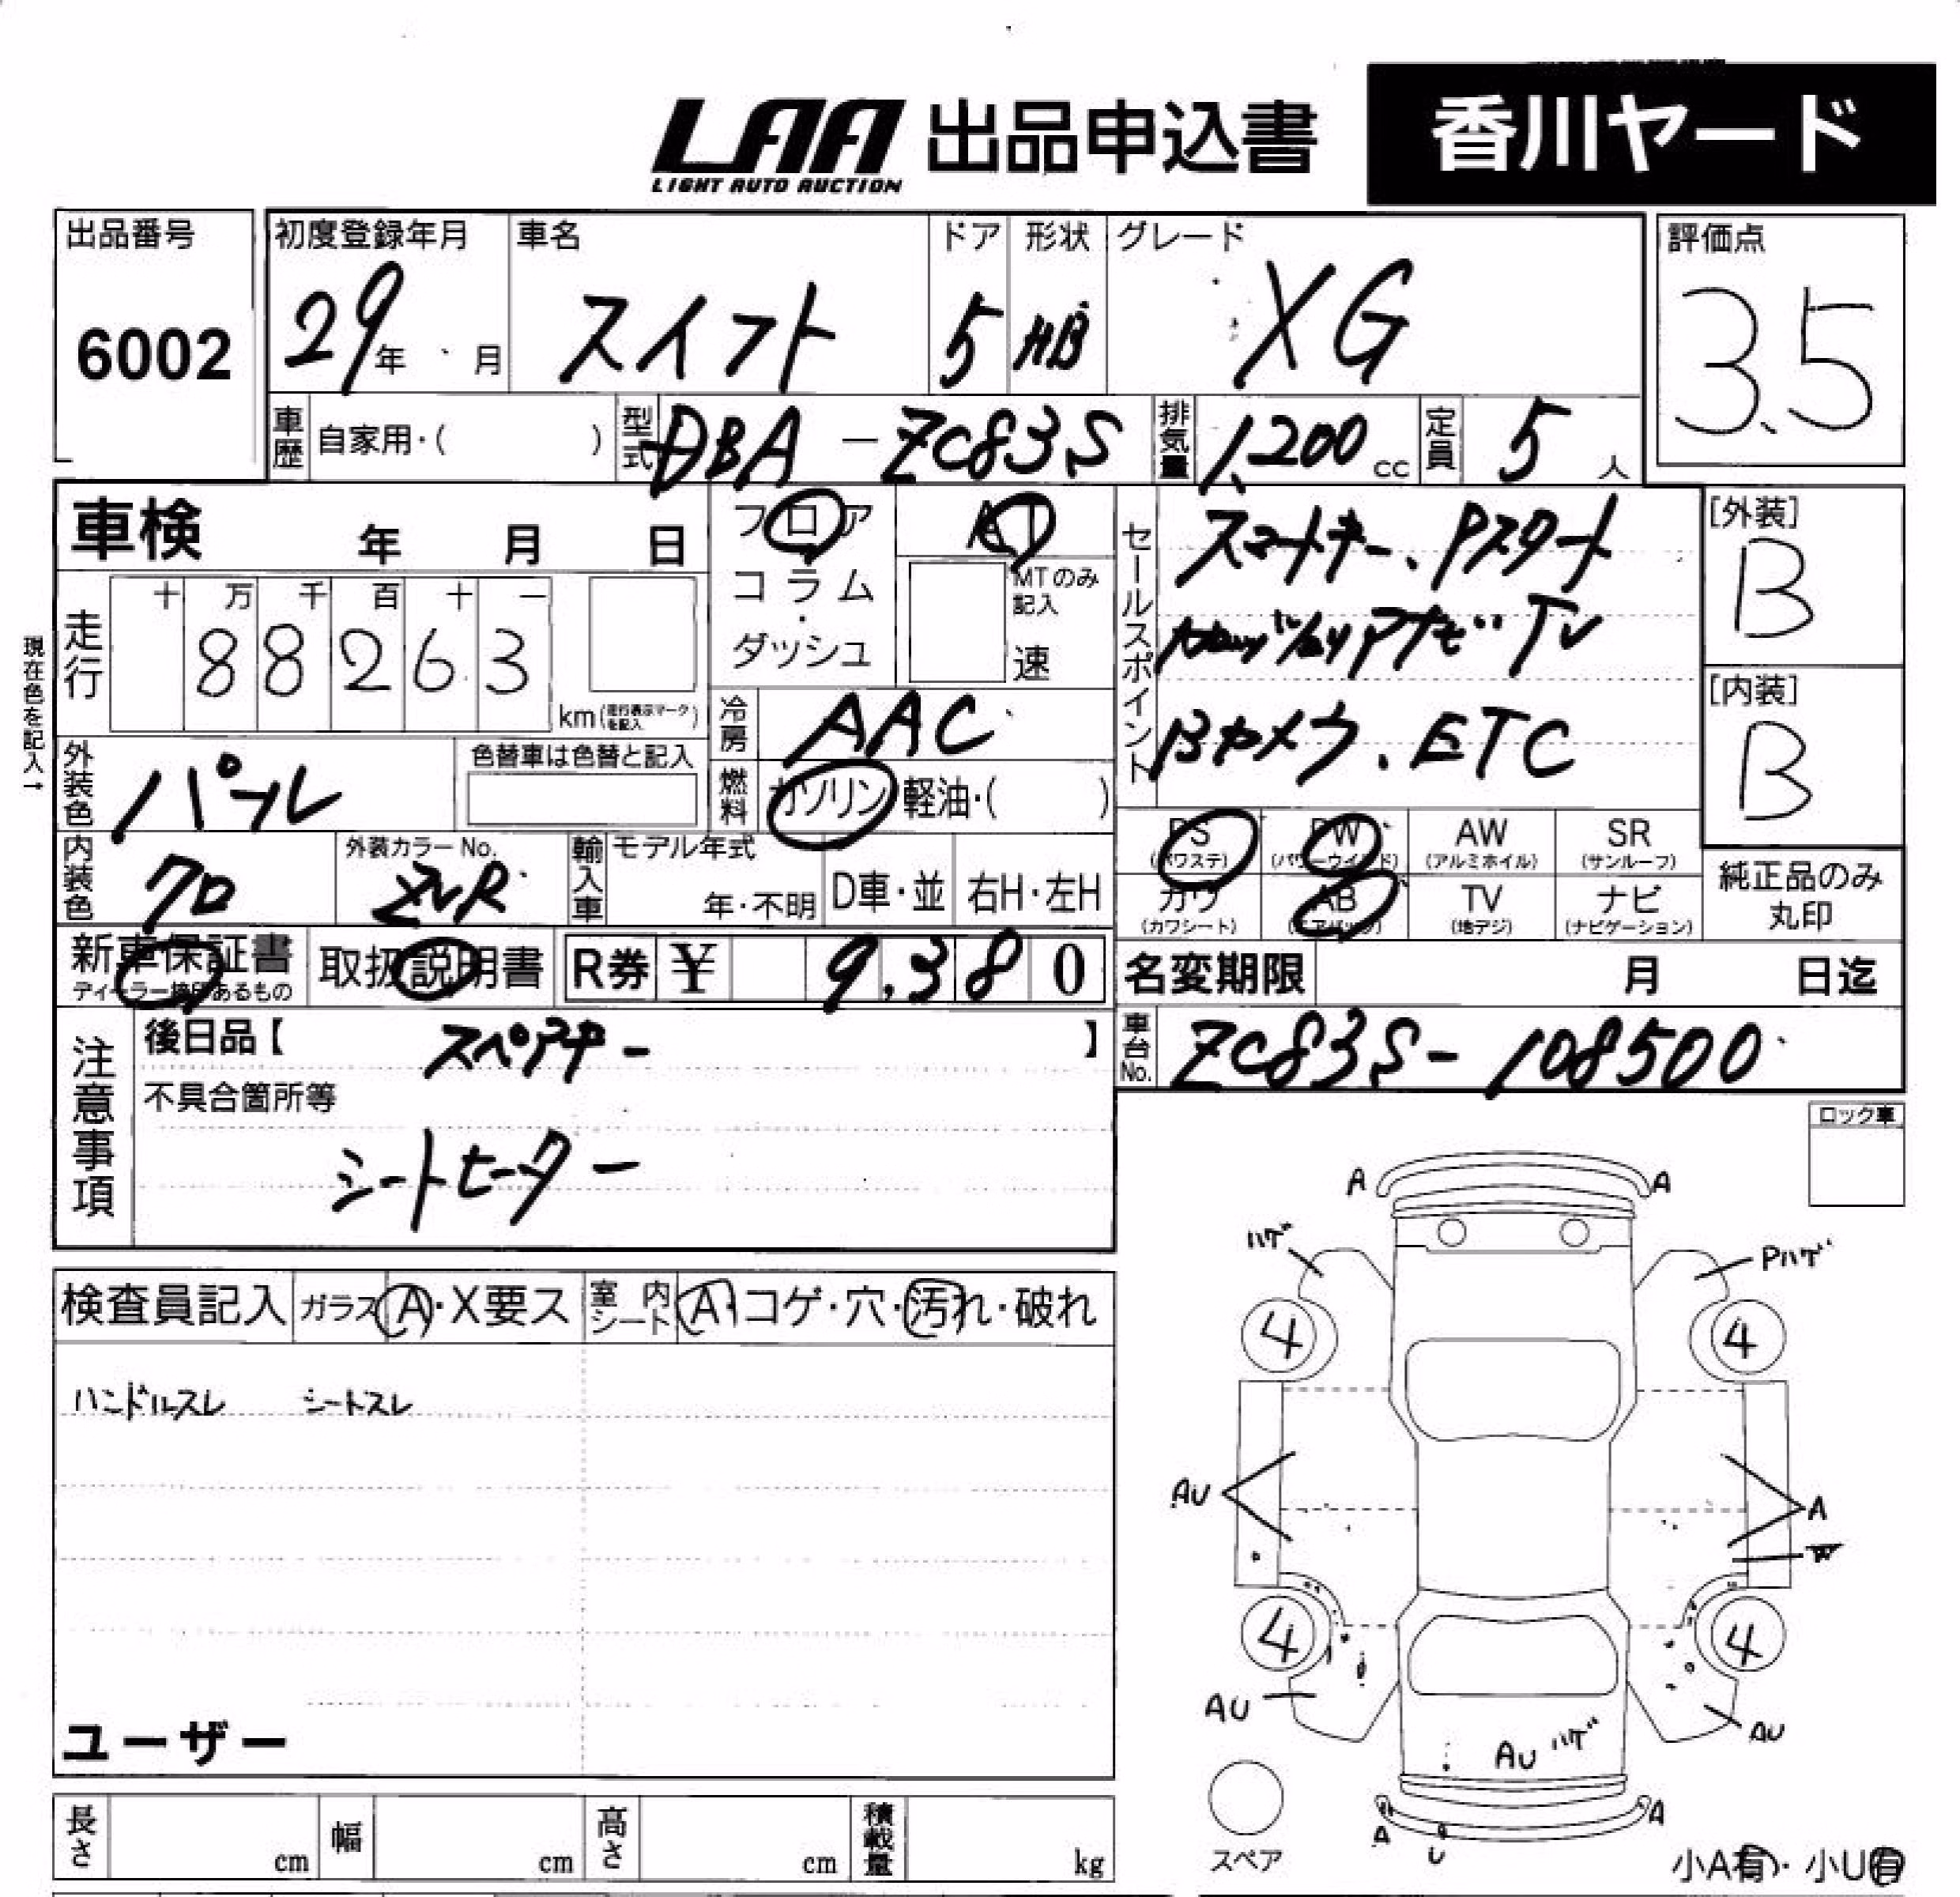 LAA 出品申込書 香川ヤード
LIGHT AUTO AUCTION
出品番号 初度登録年月 車名 ドア 形状 グレード 評価点
6002 29年 月 スイフト 5 HB XG 3.5
車歴 自家用・( ) 型式 DBA-ZC83S 排気量 1,200cc 定員 5人
車検 年 月 日
フロア AT
コラム・ダッシュ
MTのみ記入
速
現在色を記入→
走行 十 万 千 百 十 一
88263
km(走行表示マークを記入)
セールスポイント
スマートキー、Pスタート
ナビ TV
Bカメラ、ETC
[外装]
B
[内装]
B
冷房 AAC
外装色 パール
色替車は色替と記入
燃料 ガソリン 軽油・( )
内装色 クロ
外装カラーNo. ZVR
輸入車 モデル年式
年・不明 D車・並 右H・左H
PS (パワステ) PW (パワーウインド) AW (アルミホイル) SR (サンルーフ)
カワ (カワシート) AB (エアバッグ) TV (地デジ) ナビ (ナビゲーション)
純正品のみ
丸印
新車保証書 取扱説明書 R券 ¥ 9,380
ディーラー捺印あるもの
名変期限 月 日迄
注意事項
後日品【 スペアキー 】
車台No. ZC83S-108500
不具合箇所等
シートヒーター
ロック車
検査員記入 ガラス A・X要ス 室内シート A・コゲ・穴・汚れ・破れ
ハンドルスレ シートスレ
ユーザー
長さ cm 幅 cm 高さ cm 積載量 kg
A A
ハゲ Pハゲ
4 4
AU A
W
4 4
AU AU
AU ハゲ
A A
U
スペア
小A有・小U有